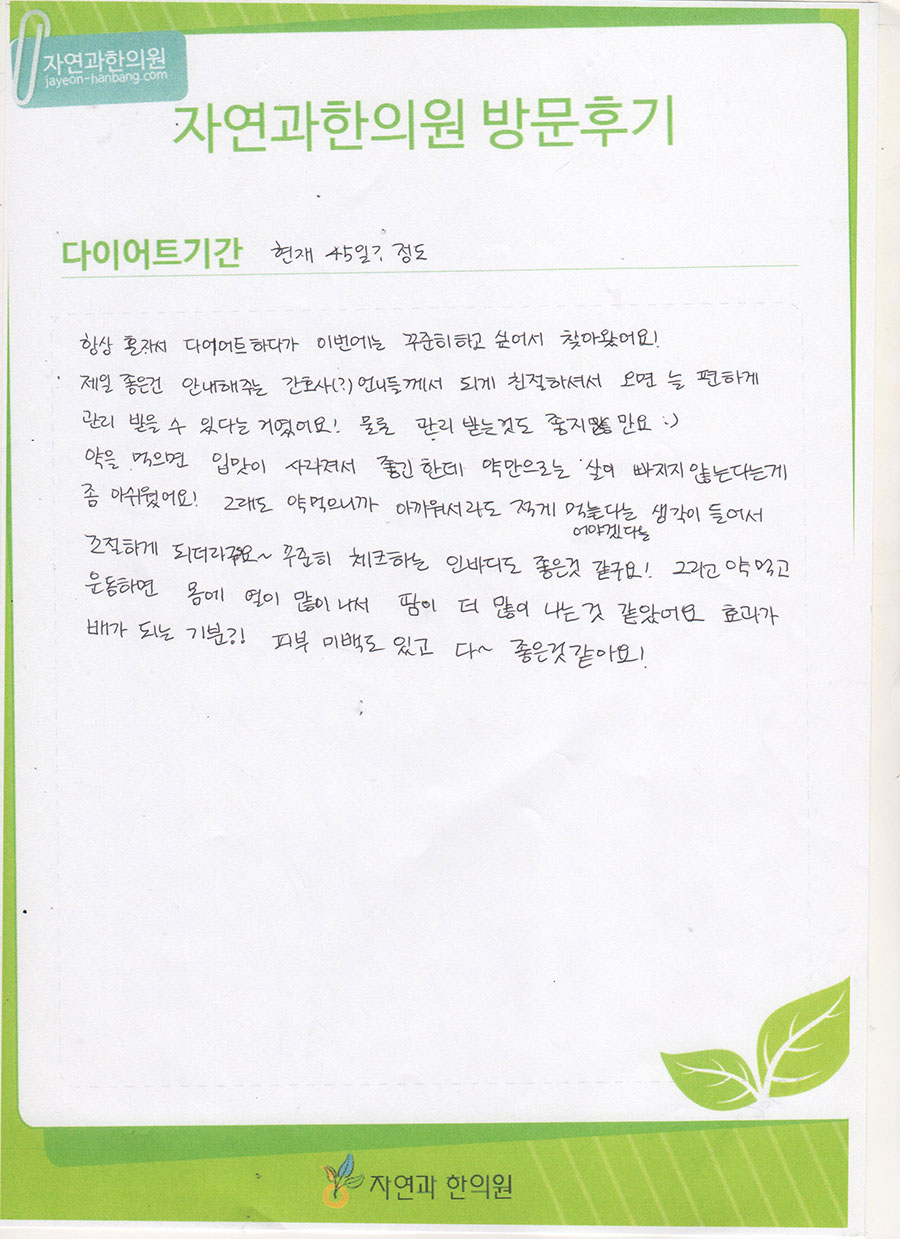 자연과한의원
jayeon-hanbang.com
자연과한의원 방문후기
다이어트기간 현재 45일? 정도
항상 혼자서 다이어트하다가 이번에는 꾸준히하고 싶어서 찾아왔어요!
제일 좋은건 안내해주는 간호사(?) 언니들께서 되게 친절하셔서 오면 늘 편하게
관리 받을 수 있다는 거였어요! 물론 관리 받는것도 좋지만요 :)
약을 먹으면 입맛이 사라져서 좋긴한데 약만으로는 살이 빠지지 않는다는게
좀 아쉬웠어요! 그래도 약먹으니까 아까워서라도 적게 먹는다는 생각이 들어서
어야겠다는
조절하게 되더라구요~ 꾸준히 체크하는 인바디도 좋은것 같구요! 그리고 약먹고
운동하면 몸에 열이 많이 나서 땀이 더 많이 나는것 같았어요 효과가
배가 되는 기분?! 피부 미백도 있고 다~ 좋은것같아요!
자연과 한의원